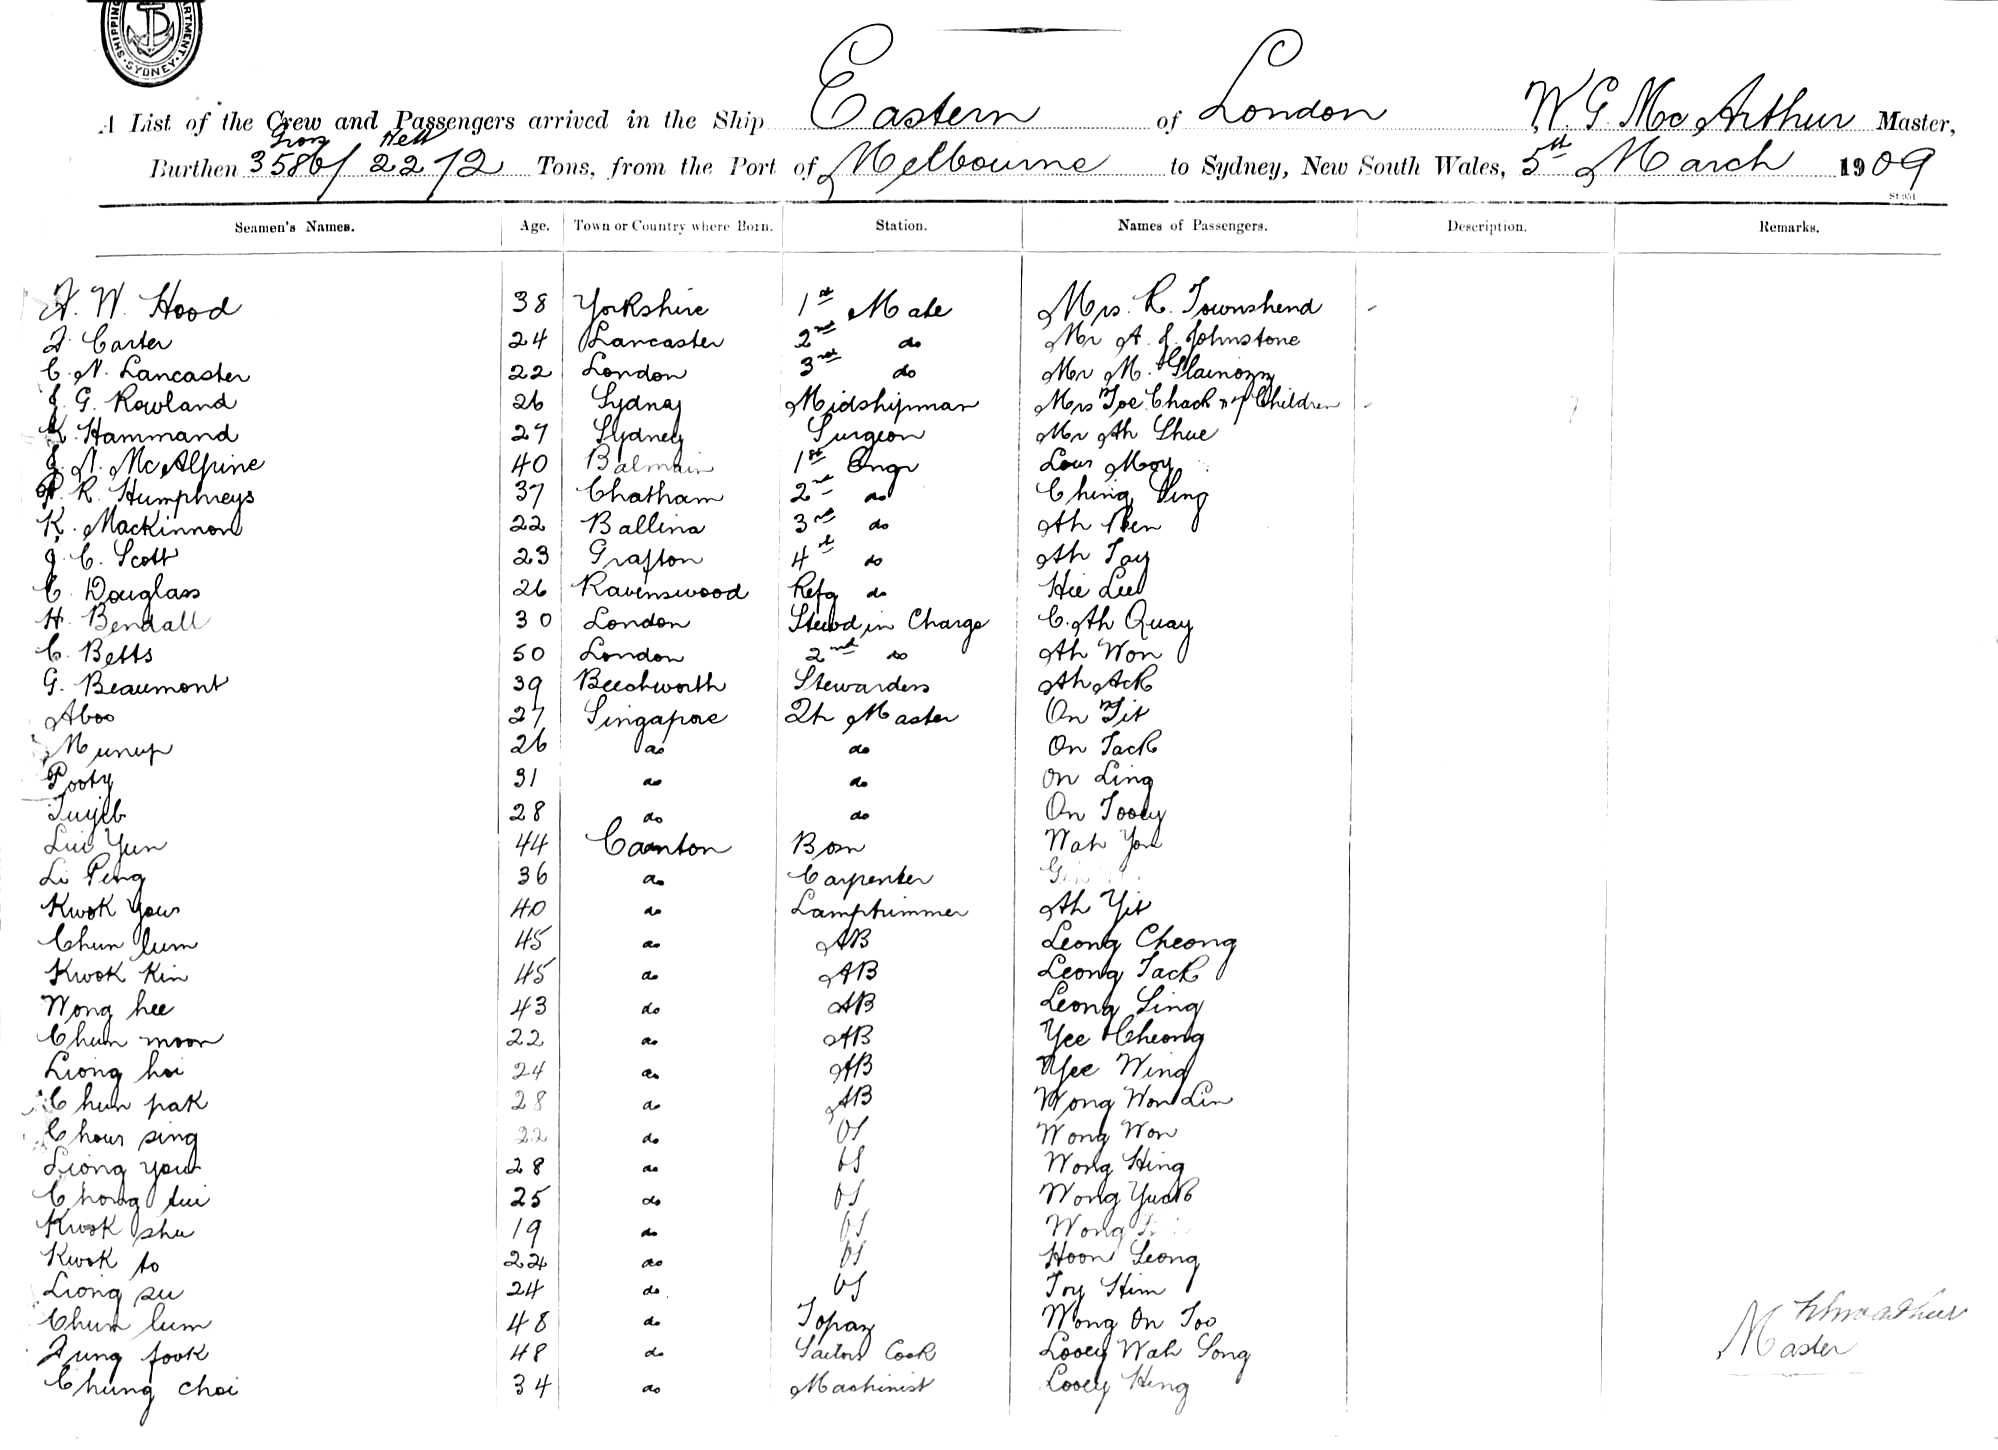 SHIPPING DEPARTMENT SYDNEY
A List of the Crew and Passengers arrived in the Ship Eastern of London W. G. McArthur Master,
Gross Nett
Burthen 3586/2272 Tons, from the Port of Melbourne to Sydney, New South Wales, 5th March 1909
St 951
Seamen's Names. Age. Town or Country where Born. Station. Names of Passengers. Description. Remarks.
W. Hood 38 Yorkshire 1st Mate Mrs. R. Townshend
Carter 24 Lancaster 2nd do Mr A. J. Johnstone
C. N. Lancaster 22 London 3rd do Mr M.
J. G. Rowland 26 Sydney Midshipman Mrs Joe Chack Children
K. Hammand 27 Sydney Surgeon Mr Ah Shue
J. N. McAlpine 40 Balmain 1st Engr Moy
R. Humphreys 37 Chatham 2nd do Ching
K. Mackinnon 22 Ballina 3rd do Ah
J. C. Scott 23 Grafton 4th do Ah
C. Douglass 26 Ravenswood Refg do Hie Lee
H. Bendall 30 London Stewd in Charge C. Ah Quay
C. Betts 50 London 2nd do Ah Won
G. Beaumont 39 Beechworth Stewardess Ah Ack
Aboo 27 Singapore Qtr Master On
Munup 26 do do On Jack
Pooty 31 do do On Ling
28 do do On Tooey
Lui Yun 44 Canton Bosn Wah Yon
Li Peng 36 do Carpenter
Kwok You 40 do Lamptrimmer Ah Yit
Chun lum 45 do AB Leong Cheong
Kwok Kin 45 do AB Leong Tack
Wong hee 43 do AB Leong Sing
Chun moon 22 do AB Yee Cheong
Liong hoi 24 do AB Yee Wing
Chun pak 28 do AB Wong Won Lin
Chour sing 22 do OS Wong Won
Liong you 28 do OS Wong Hing
Chong tui 25 do OS Wong Yuck
Kwok shu 19 do OS Wong
Kwok to 22 do OS Hoon Leong
Liong su 24 do OS Toy Him
Chun lum 48 do Topaz Wong On Too
Fung fook 48 do Sailors Cook Looey Wah Song
Chung choi 34 do Machinist Looey Hing
Master